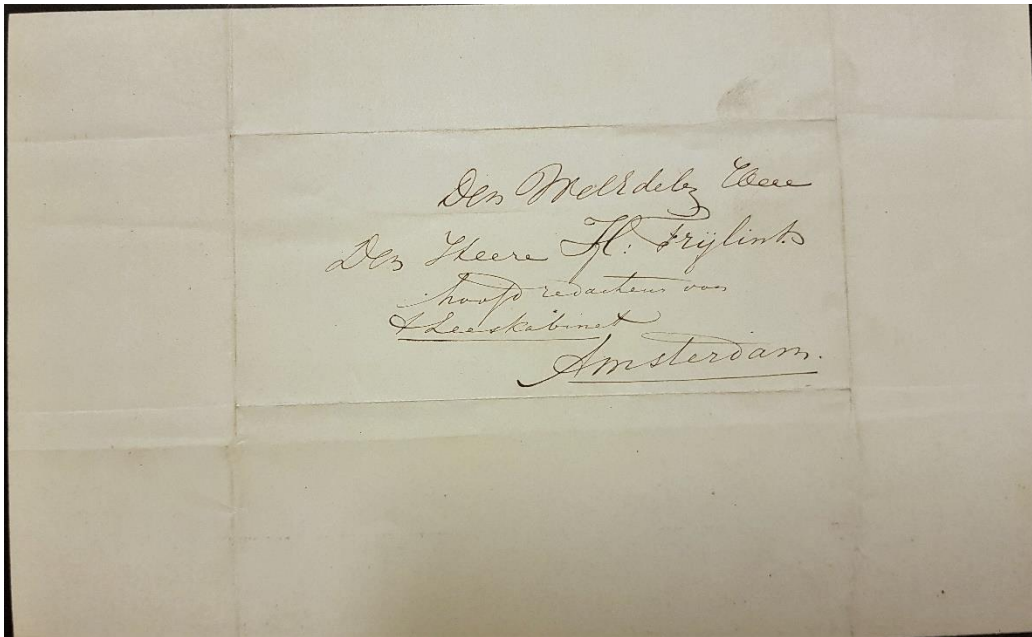 Den WelEdelen Heer
Den Heere H. Frijlink
hoofd redacteur van
't Leeskabinet
Amsterdam.